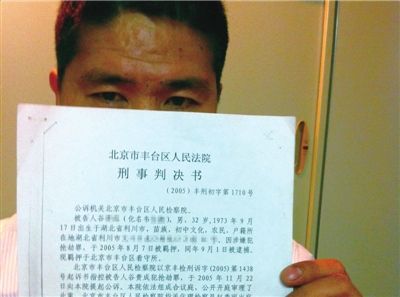 北京市丰台区人民法院
刑事判决书
（2005）丰刑初字第1710号
公诉机关北京市丰台区人民检察院。
被告人谷（化名韦），男，32岁，1973年9
月17日出生于湖北省利川市，苗族，初中文化，农民，户籍所
在地湖北省利川市，因涉嫌犯
抢劫罪，于2005年8月7日被羁押，同年9月1日被逮捕。
现羁押于北京市丰台区看守所。
北京市丰台区人民检察院以京丰检刑诉字（2005）第1438
号起诉书指控被告人谷贵成犯抢劫罪，于2005年11月22
日向本院提起公诉。本院依法组成合议庭，公开开庭审理了